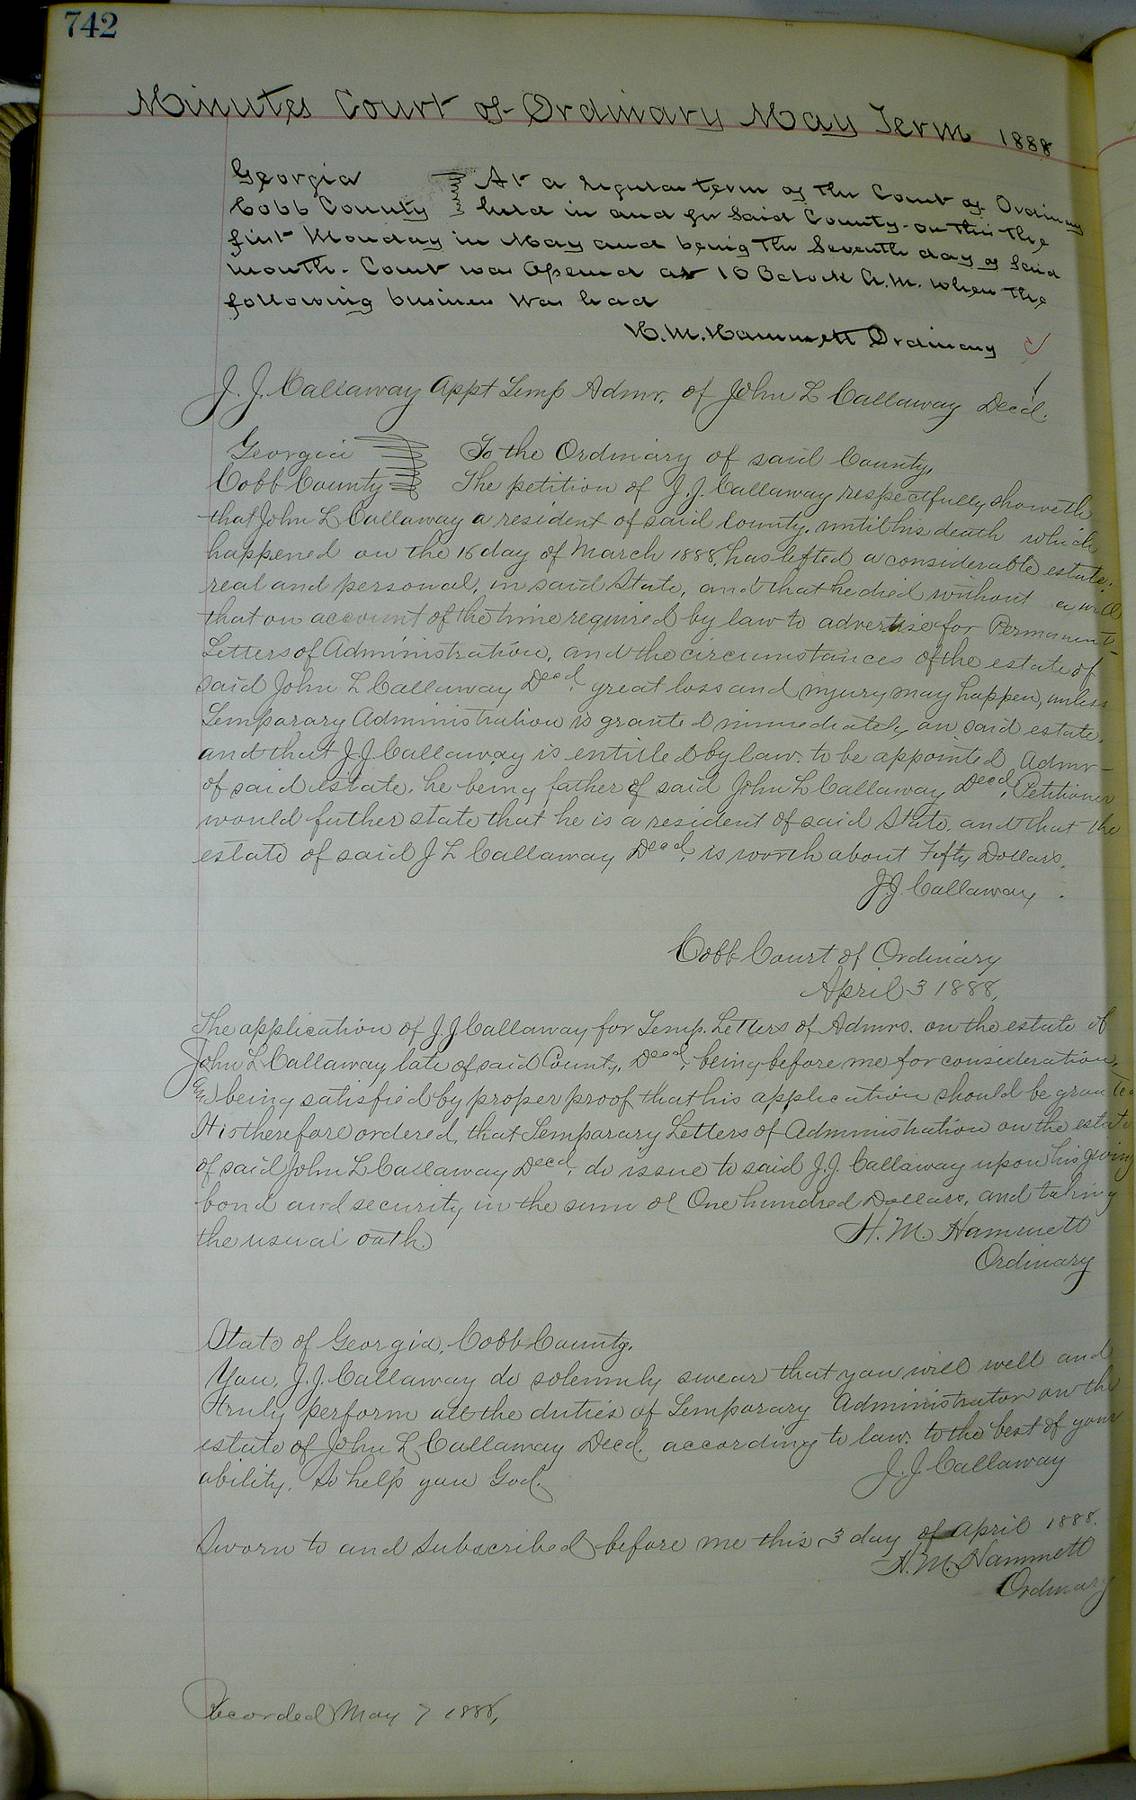 742
Minutes Court of Ordinary May Term 1888
Georgia } At a regular term of the Court of Ordinary
Cobb County } held in and for Said County on this the
first Monday in May and being the Seventh day of Said
month. Court was opened at 10 Oclock A.M. when the
following business was had
H. M. Hammett Ordinary
J. J. Callaway Appt Temp Admr. of John L Callaway Decd.
Georgia } To the Ordinary of said County,
Cobb County } The petition of J. J. Callaway respectfully showeth
that John L Callaway a resident of said County, until his death which
happened on the 16 day of March 1888, has lefted a considerable estate,
real and personal, in said State, and that he died without a will
that on account of the time required by law to advertise for Permanent
Letters of Administration, and the circumstances of the estate of
said John L Callaway Decd. great loss and injury may happen, unless
Temparary Administration is granted immediately on said estate,
and that J J Callaway is entitled by law to be appointed Admr
of said estate, he being father of said John L Callaway Decd, Petitioner
would futher state that he is a resident of said State, and that the
estate of said J L Callaway Decd, is worth about Fifty Dollars.
J. J. Callaway.
Cobb Court of Ordinary
April 3 1888,
The application of J J Callaway for Temp. Letters of Admrs. on the estate of
John L Callaway late of said County, Decd, being before me for consideration,
& being satisfied by proper proof that his application should be granted
It is therefore ordered, that Temparary Letters of Administration on the estate
of said John L Callaway Decd, do issue to said J. J. Callaway upon his giving
bond and security in the sum of One hundred Dollars, and taking
the usual oath.
H. M. Hammett
Ordinary
State of Georgia, Cobb County.
You, J. J. Callaway do solemnly swear that you will well and
truly perform all the duties of Temparary Administrator on the
estate of John L Callaway Decd. according to law, to the best of your
ability. So help you God.
J. J Callaway
Sworn to and subscribed before me this 3 day of April 1888.
H. M. Hammett
Ordinary
Recorded May 7 1888,